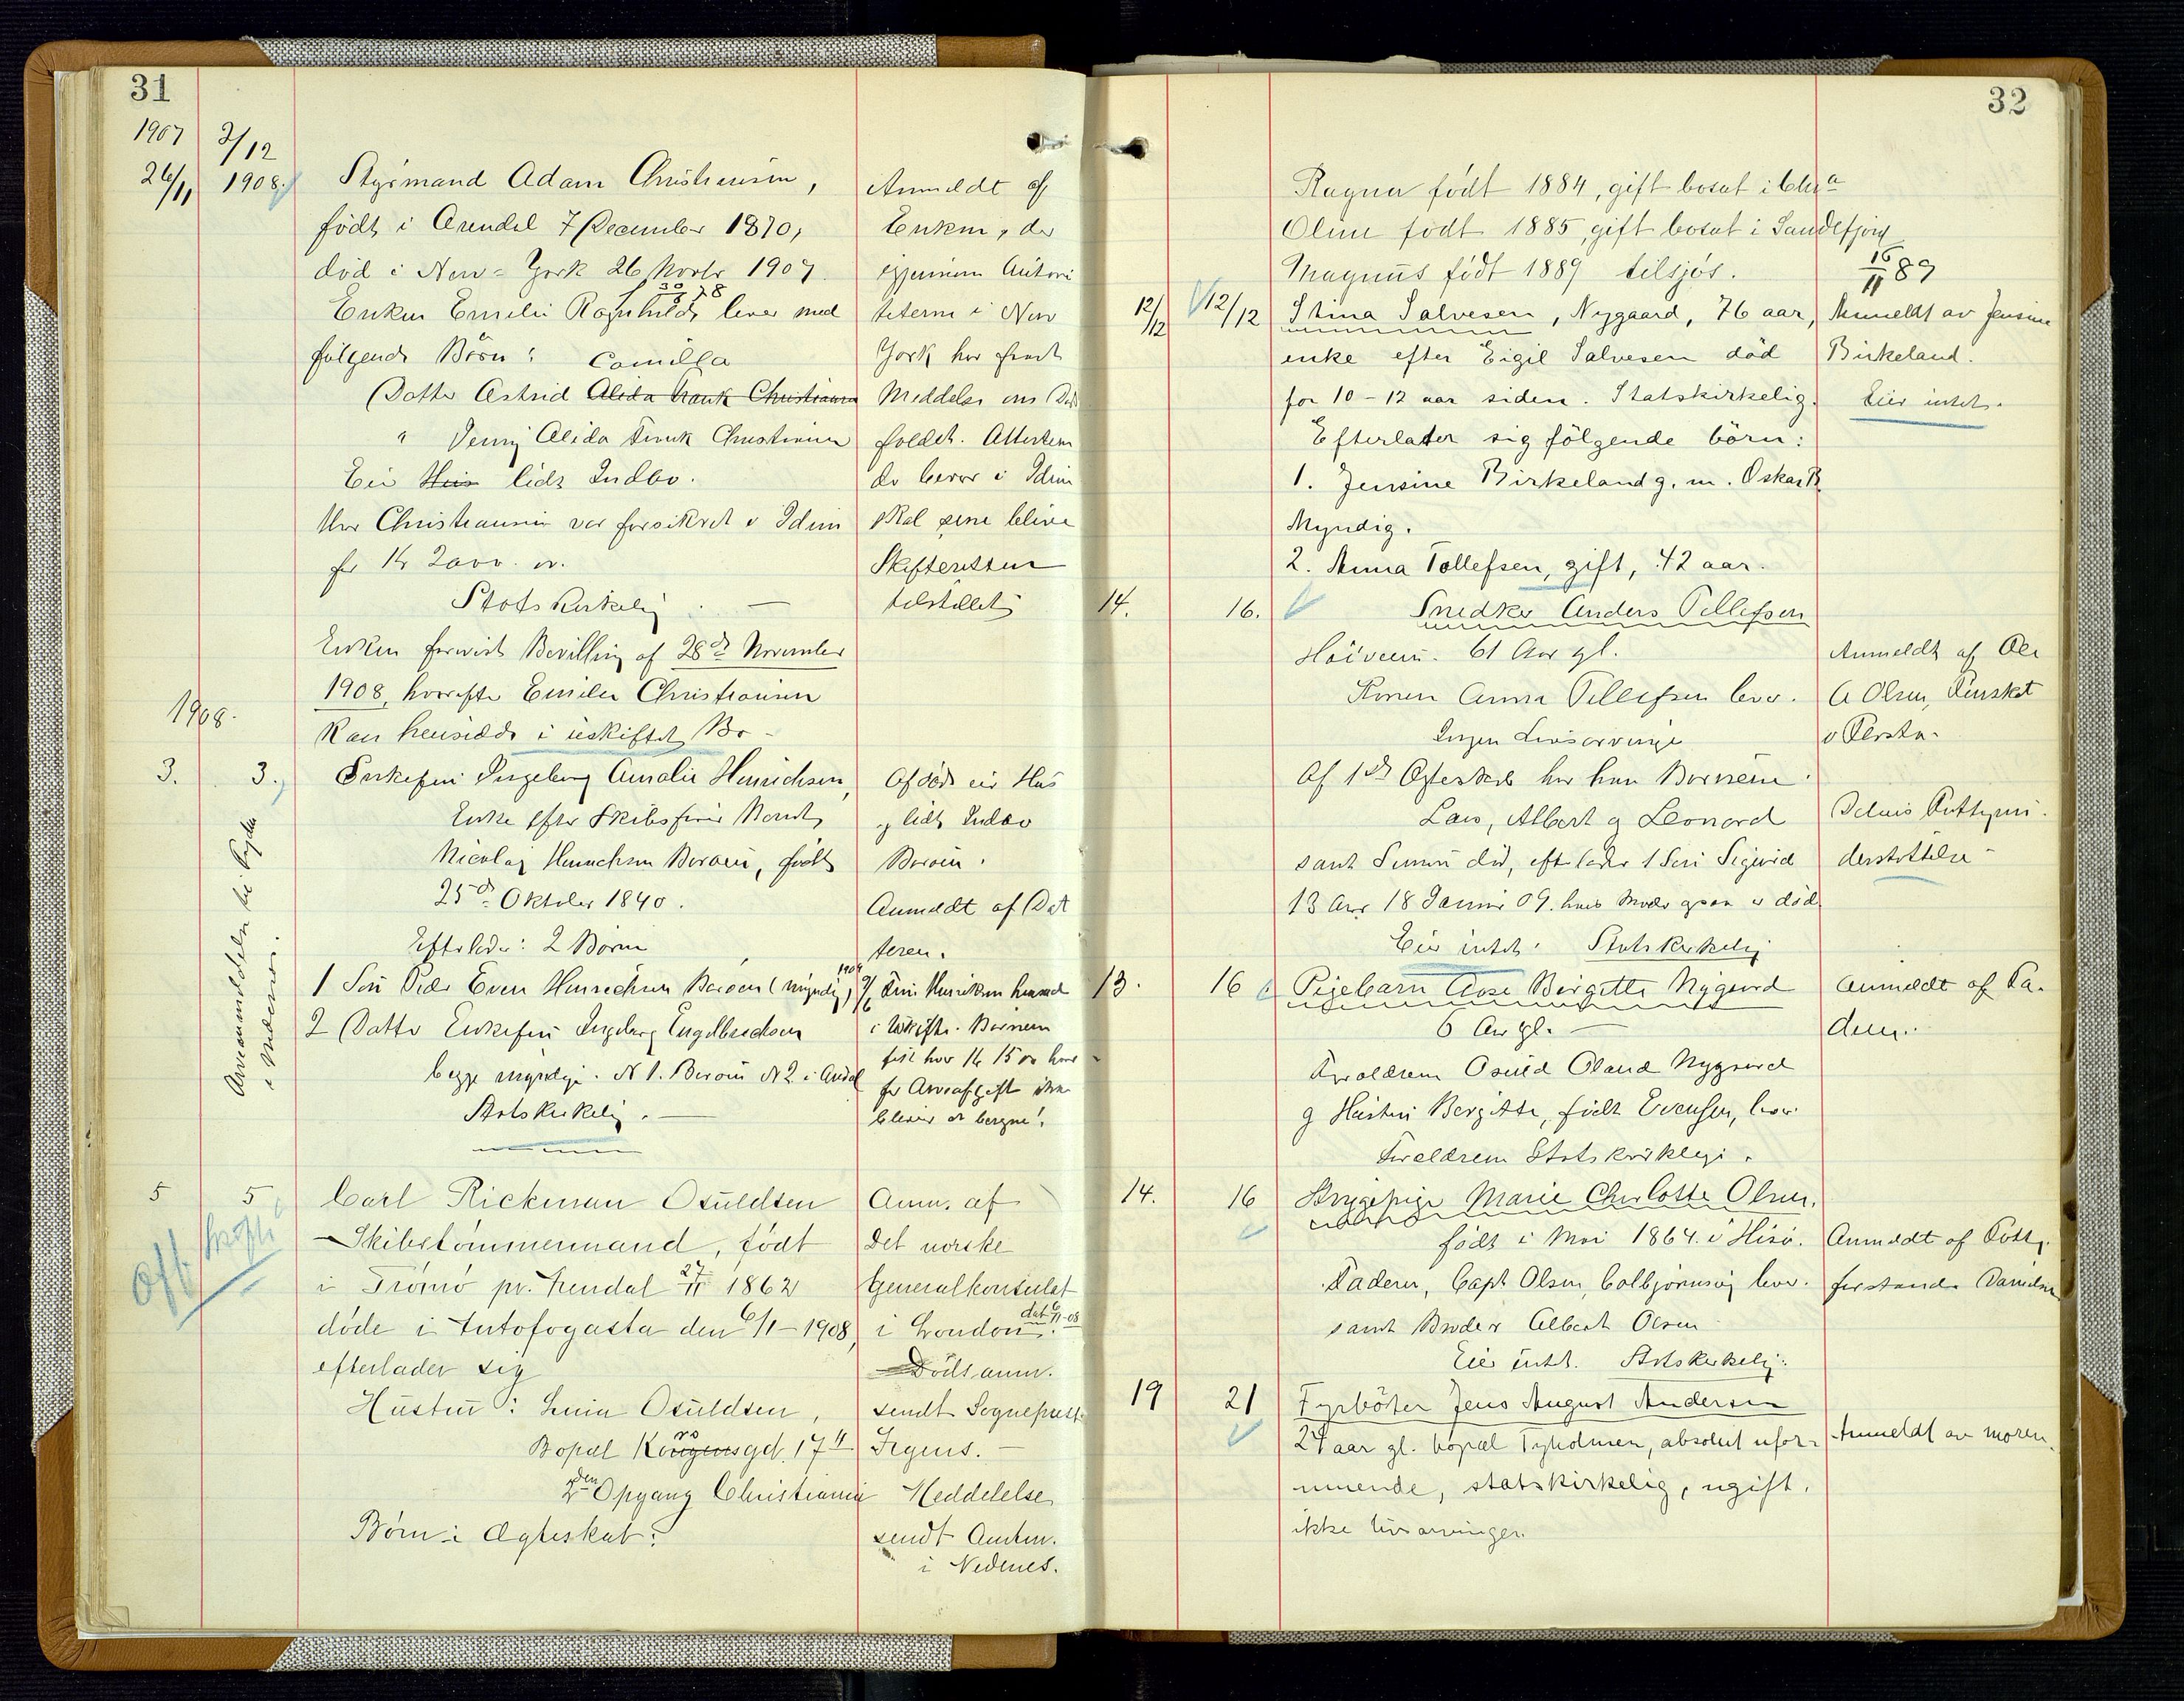 31
1907 2/12
26/11 1908.
Styrmand Adam Christiansen,
født i Arendal 7 December 1870,
død i New-York 26 Novbr 1907.
30/8 78
Enken Emelie Ragnhild, lever med
følgende Børn:
Camilla
Datter Astrid Alida Frank Christiansen
" Jenny Alida Frank Christiansen
Eier Hus lidt Indbo.
Christiansen var forsikret i Idun
for Kr 2000. -
Statskirkelig. —
Enken forevist Bevilling af 28de November
1908, hvorefter Emilie Christiansen
kan hensidde i uskiftet Bo -
Anmeldt af
Enken, der
gjennem Autori
teterne i New
York har faaet
Meddelse om Døds
faldet. Attesten
der beror i Idun
skal sene blive
Skifteretten
tilstillet
1908.
3. 3.
Enkefru Ingeborg Amalie Henrichsen,
Enke efter Skibsfører Bernt
Nicolay Henrichsen Barbu, født
25de Oktober 1840.
Efterlader: 2 Børn
1 Søn Peder Even Henrichsen (myndig)
2 Datter Enkefru Ingeborg Engelbrechtsen
begge myndige. N 1. N 2 i Arendal
Statskirkelig. —
Afdøde eier Hus
og lidt Indbo
Anmeldt af Dat
teren.
1909
i Uskifte. Børnene
for Arveafgift
i Nedenæs.
5 5
Carl Rickman Osuldsen
Skibstømmermand, født
i Tromø pr. Arendal 27/11 1862
døde i Antofogasta den 6/1-1908,
efterlader sig
Hustru: Lina Osuldsen,
Bopæl Kongensgd. 17 II
2den Opgang Christiania
Børn i Ægteskab:
Anm. af
Det norske
Generalkonsulat
i London. dat. 6/11-08
Dødsanm.
sendt Sogneprest
Irgens. —
Meddelelse
sendt Amtm.
i Nedenes.
32
Ragna født 1884, gift bosat i Chra
Oline født 1885, gift bosat i Sandefjord
Magnus født 1889 tilsjøs.
16/11 89
12/12 12/12 Stina Salvesen, Nygaard, 76 aar,
enke efter Eigil Salvesen død
for 10-12 aar siden. Statskirkelig.
Efterlater sig følgende børn:
1. Jensine Birkeland g. m. Oskar B.
Myndig.
2. Anna Tollefsen, gift, 42 aar.
Anmeldt av Jensine
Birkeland.
Eier intet.
14. 16. Snedker Anders Tellefsen
61 Aar gl.
Konen Anna Tellefsen lever.
Ingen Livsarvinge
Af 1ste Ægteskab har han Børnene
Lars, Albert og Leonard
samt død, efterlader 1 Søn Sigurd
13 Aar 18 Januar 09. hvis Moder er død
Eier intet. Statskirkelig
Anmeldt af Ole
A Olsen,
13. 16 Pigebarn Aase Birgitte Nygaard
6 Aar gl. —
Forældrene Osuld Oland Nygaard
og Hustru Bergitte, født Evensen, lever
Forældrene Statskirkelige.
Anmeldt af Fa-
deren.
14. 16 Strygepige Marie Charlotte Olsen.
født i Mai 1864 i Hisø.
Faderen, Capt Olsen, Colbjørnsvig lever.
samt Broder Albert Olsen
Eier intet. Statskirkelig.
Anmeldt af Fattig-
forstander Danielsen
19 21 Fyrbøter Jens August Andersen
24 aar gl. bopæl Tyholmen, absolut ufor-
muende, statskirkelig, ugift.
ikke livsarvinger.
Anmeldt av moren.